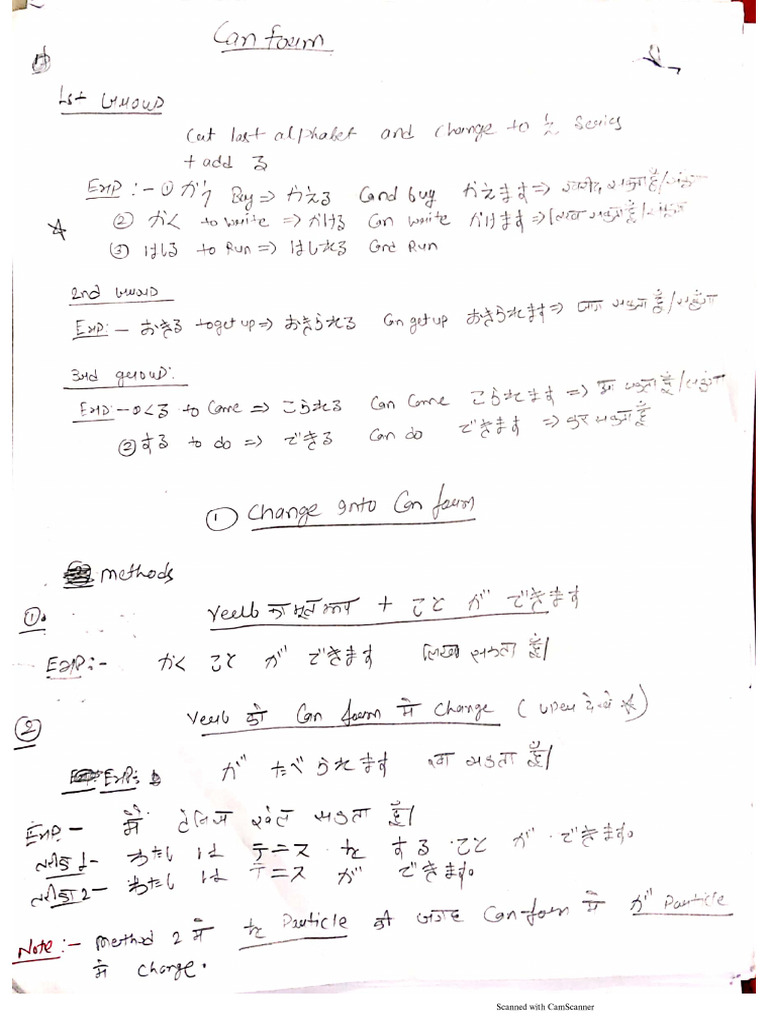 Can form
1st group
Cut last alphabet and change to え series
+ add る
Exp :- ① かう Buy => かえる Cand buy かえます => खरीद सकता हूँ/सकूंगा
② かく to write => かける Can write かけます => लिख सकता हूँ/सकूंगा
③ はしる to Run => はしれる Cand Run
2nd group
Exp:- おきる to get up => おきられる Can get up おきられます => जाग सकता हूँ/सकूंगा
3rd group:
Exp:- ① くる to Come => こられる Can Come こられます => आ सकता हूँ/सकूंगा
② する to do => できる Can do できます => कर सकता हूँ
① Change into Can form
methods
①. Verb का मूल रूप + こと が できます
Exp:- かく こと が できます लिख सकता हूँ|
② Verb को Can form में Change (उपर देखें *)
Exp: が たべられます खा सकता हूँ|
Exp- मैं टेनिस खेल सकता हूँ|
तरीका 1- わたし は テニス を する こと が できます。
तरीका 2- わたし は テニス が できます。
Note:- Method 2 में を Particle की जगह Can form में が Particle
में change.
Scanned with CamScanner